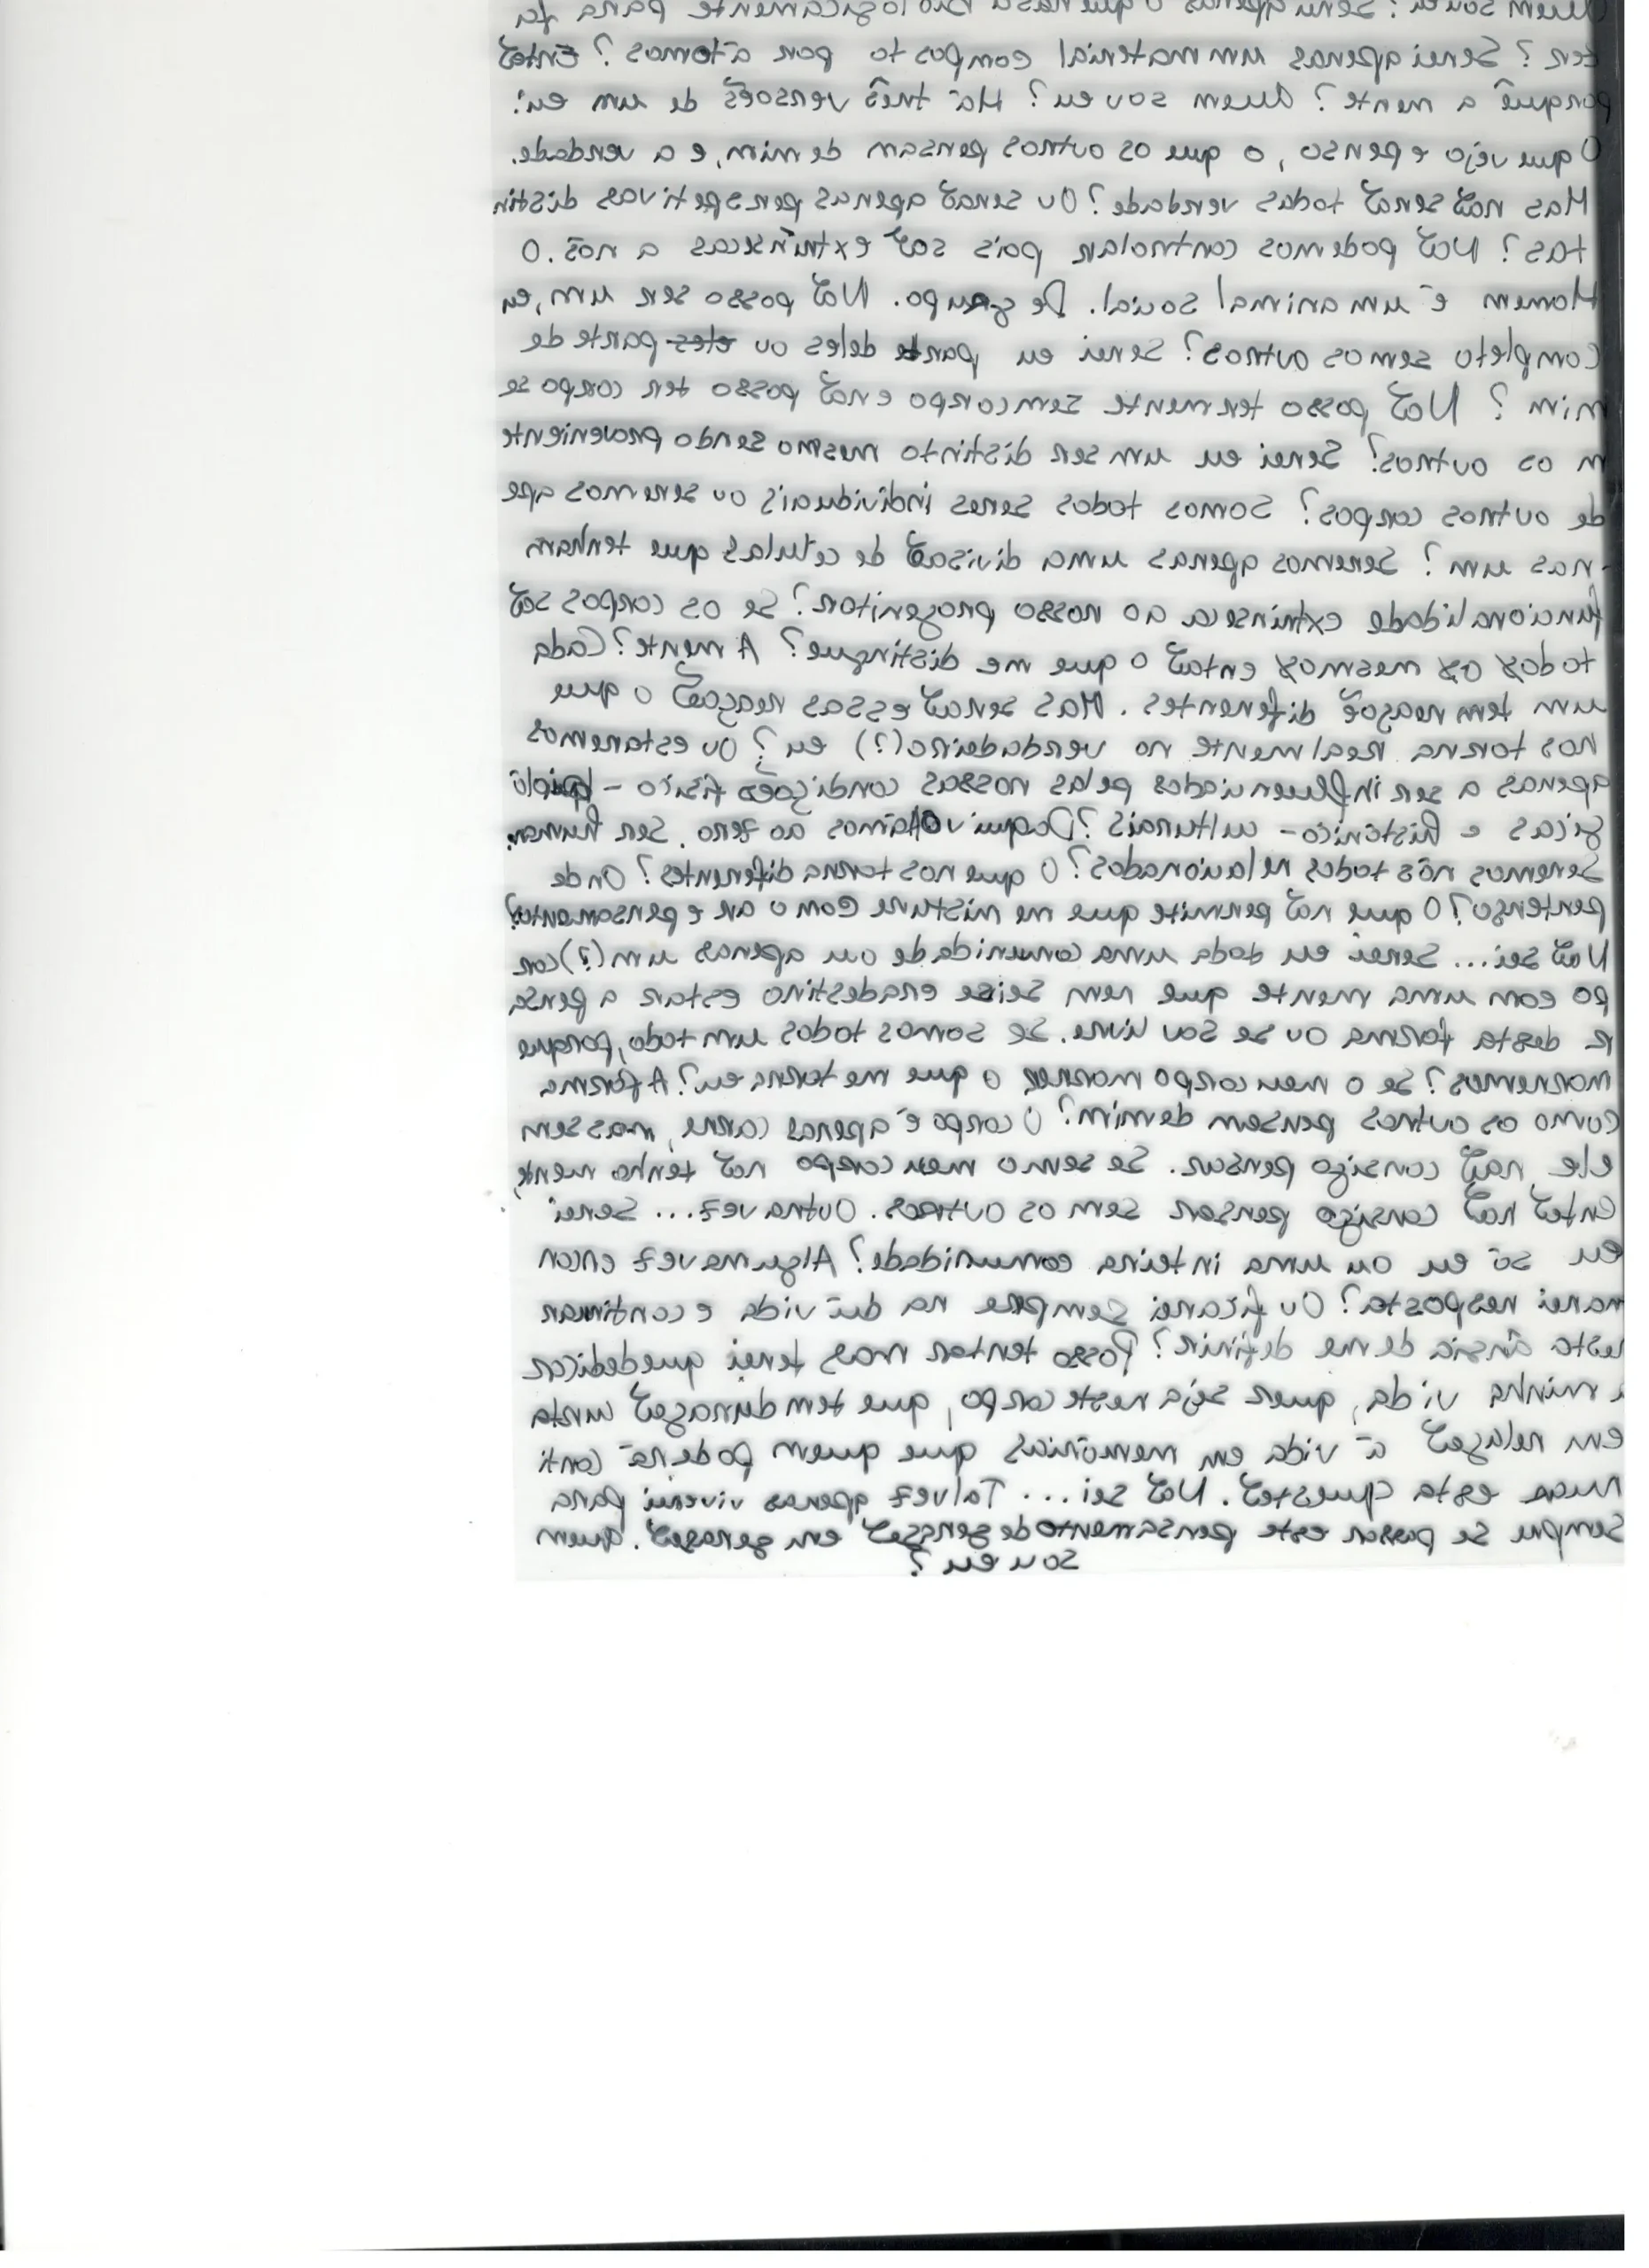 Quem sou eu? Serei apenas o que nasci biologicamente para fa
zer? Serei apenas um material composto por átomos? Então
porquê a mente? Quem sou eu? Há três versões de um eu:
O que vejo e penso, o que os outros pensam de mim, e a verdade.
Mas não serão todas verdade? Ou serão apenas perspetivas distin
tas? Não podemos controlar pois são extrínsecas a nós. O
Homem é um animal social. De grupo. Não posso ser um, eu
completo sem os outros? Serei eu parte deles ou eles parte de
mim? Não posso ter mente sem corpo e não posso ter corpo se
m os outros? Serei eu um ser distinto mesmo sendo proveniente
de outros corpos? Somos todos seres individuais ou seremos ape
-nas um? Seremos apenas uma divisão de células que tenham
funcionalidade extrínseca ao nosso progenitor? Se os corpos são
todos os mesmos então o que me distingue? A mente? Cada
um tem reaçõe diferentes. Mas serão essas reação o que
nos torna realmente no verdadeiro(?) eu? Ou estaremos
apenas a ser influenciados pelas nossas condições físico - bioló
gicas e histórico - culturais? Daqui voltámos ao zero. Ser human.
Seremos nós todos relacionados? O que nos torna diferentes? Onde
pertenço? O que não permite que me misture com o ar e pensamentos?
Não sei... Serei eu toda uma comunidade ou apenas um(?) cor
po com uma mente que nem sei se era destino estar a pensa
r desta forma ou se sou livre. Se somos todos um todo, porque
morremos? Se o meu corpo morrer o que me torna eu? A forma
como os outros pensem de mim? O corpo é apenas carne, mas sem
ele não consigo pensar. Se sem o meu corpo não tenho mente,
então não consigo pensar sem os outros. Outra vez... Serei
eu só eu ou uma inteira comunidade? Alguma vez encon
trarei resposta? Ou ficarei sempre na dúvida e continuar
nesta ânsia de me definir? Posso tentar mas terei que dedicar
a minha vida, quer seja neste corpo, que tem duração curta
em relação à vida em memórias que quem poderá conti
nuar esta questão. Não sei... Talvez apenas viverei para
sempre se passar este pensamento de geração em geração. Quem
sou eu?